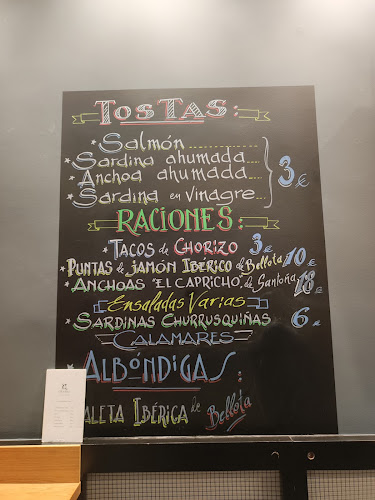 TOSTAS:
* Salmón
* Sardina ahumada
* Anchoa ahumada
* Sardina en Vinagre
3€
RACIONES:
* TACOS de CHORIZO 3€
* PUNTAS de JAMÓN IBÉRICO de Bellota 10€
* ANCHOAS "EL CAPRICHO" de Santoña 18€
Ensaladas Varias
* SARDINAS CHURRUSQUIÑAS 6€
CALAMARES
* ALBÓNDIGAS:
ALETA IBÉRICA de Bellota